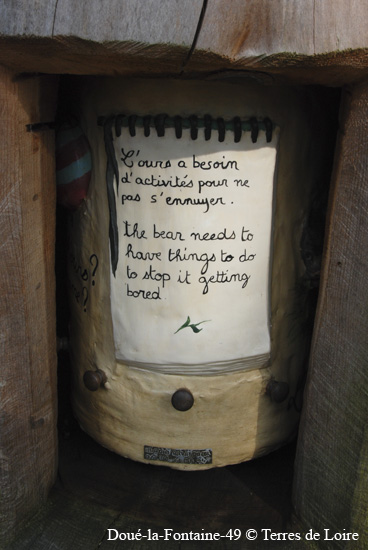 L'ours a besoin
d'activités pour ne
pas s'ennuyer.
the bear needs to
have things to do
to stop it getting
bored.
?
?
Doué-la-Fontaine-49 © Terres de Loire